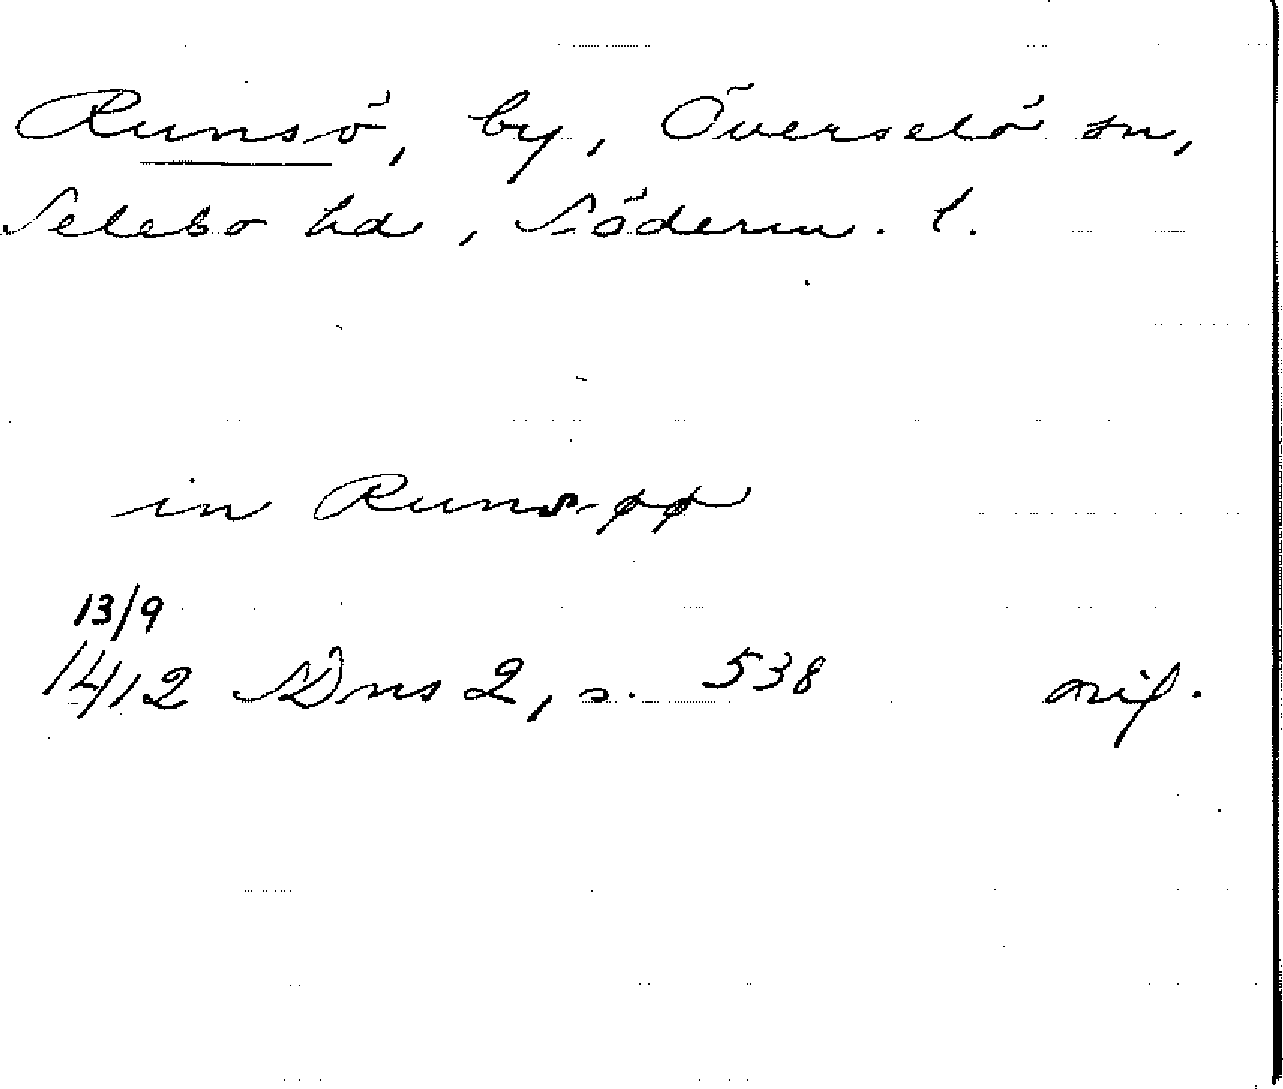 Runsö, by, Överselö sn,
Selebo hd, Söderm. l.
in Runsøø
13/9
1412 SDns 2, s. 538 mif.